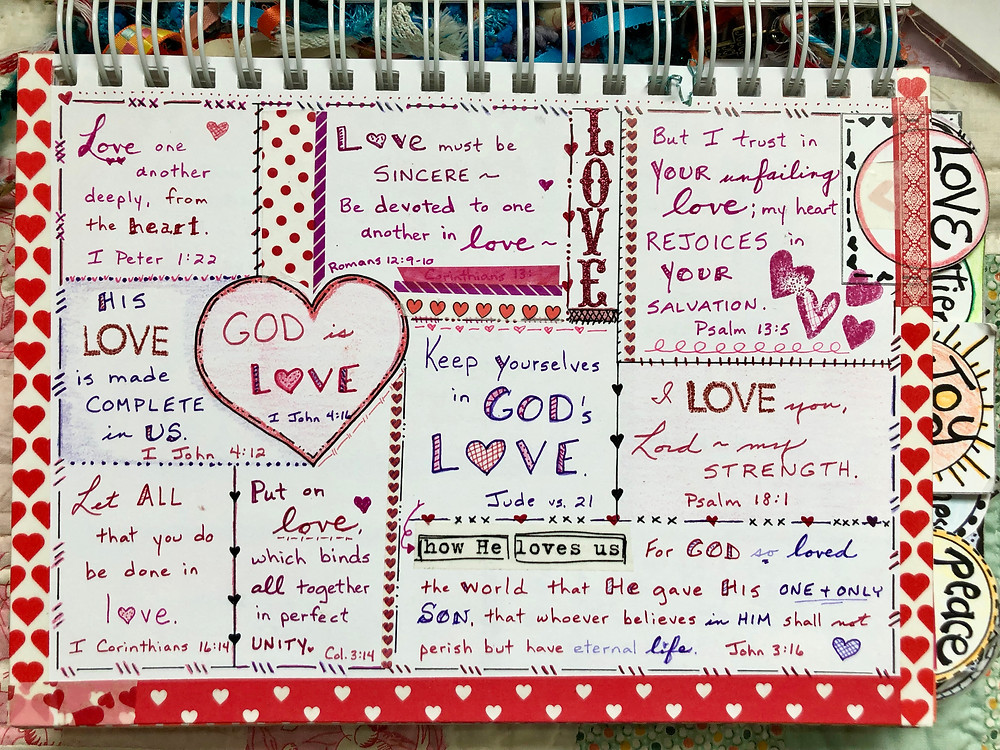 Love one
another
deeply, from
the heart.
I Peter 1:22
Love must be
SINCERE ~
Be devoted to one
another in love ~
Romans 12:9-10
Corinthians 13:
LOVE
But I trust in
YOUR unfailing
love; my heart
REJOICES in
YOUR
SALVATION.
Psalm 13:5
HIS
LOVE
is made
COMPLETE
in US.
I John 4:12
GOD is
LOVE
I John 4:16
Keep yourselves
in GOD's
LOVE.
Jude vs. 21
I LOVE you,
Lord ~ my
STRENGTH.
Psalm 18:1
Let ALL
that you do
be done in
love.
I Corinthians 16:14
Put on
love,
which binds
all together
in perfect
UNITY
Col. 3:14
how He loves us
For GOD so loved
the world that He gave His ONE + ONLY
SON, that whoever believes in HIM shall not
perish but have eternal life. John 3:16
LOVE
Joy
peace